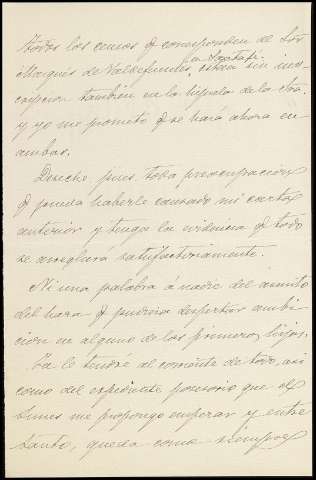 todos los censos q corresponden de
Marqués de Valdefuentes, en Getafe, están sin ins-
cripcion tambien en la hijuela de la Sra.
y yo me prometo q se hará ahora en
ambas.
Deseche pues toda preocupacion
q pueda haberle causado mi carta
anterior y tenga la evidencia q todo
se arreglara satisfactoriamente.
Ni una palabra á nadie del asunto
del para q pudiera despertar ambi-
cion en alguno de los primeros hijos.
Ya le tendré al corriente de todo, asi
como del expediente posesorio que el
lunes me propongo empezar y entre
tanto, queda como siempre